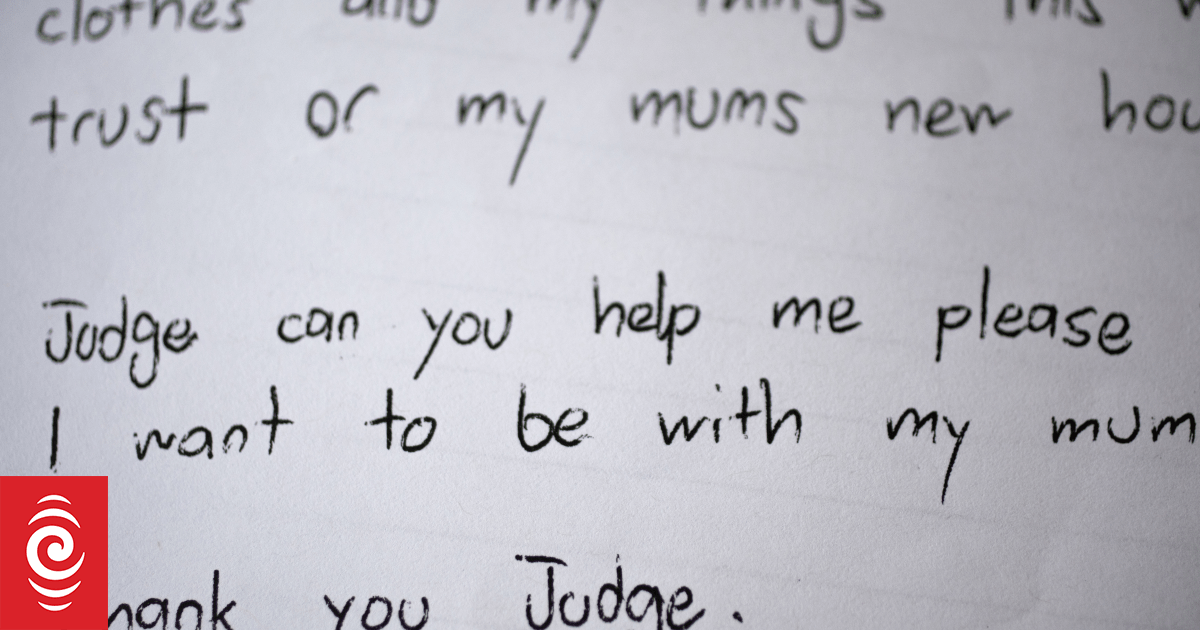 clothes and my things this w
trust or my mums new hou
Judge can you help me please
I want to be with my mum
hank you Judge.